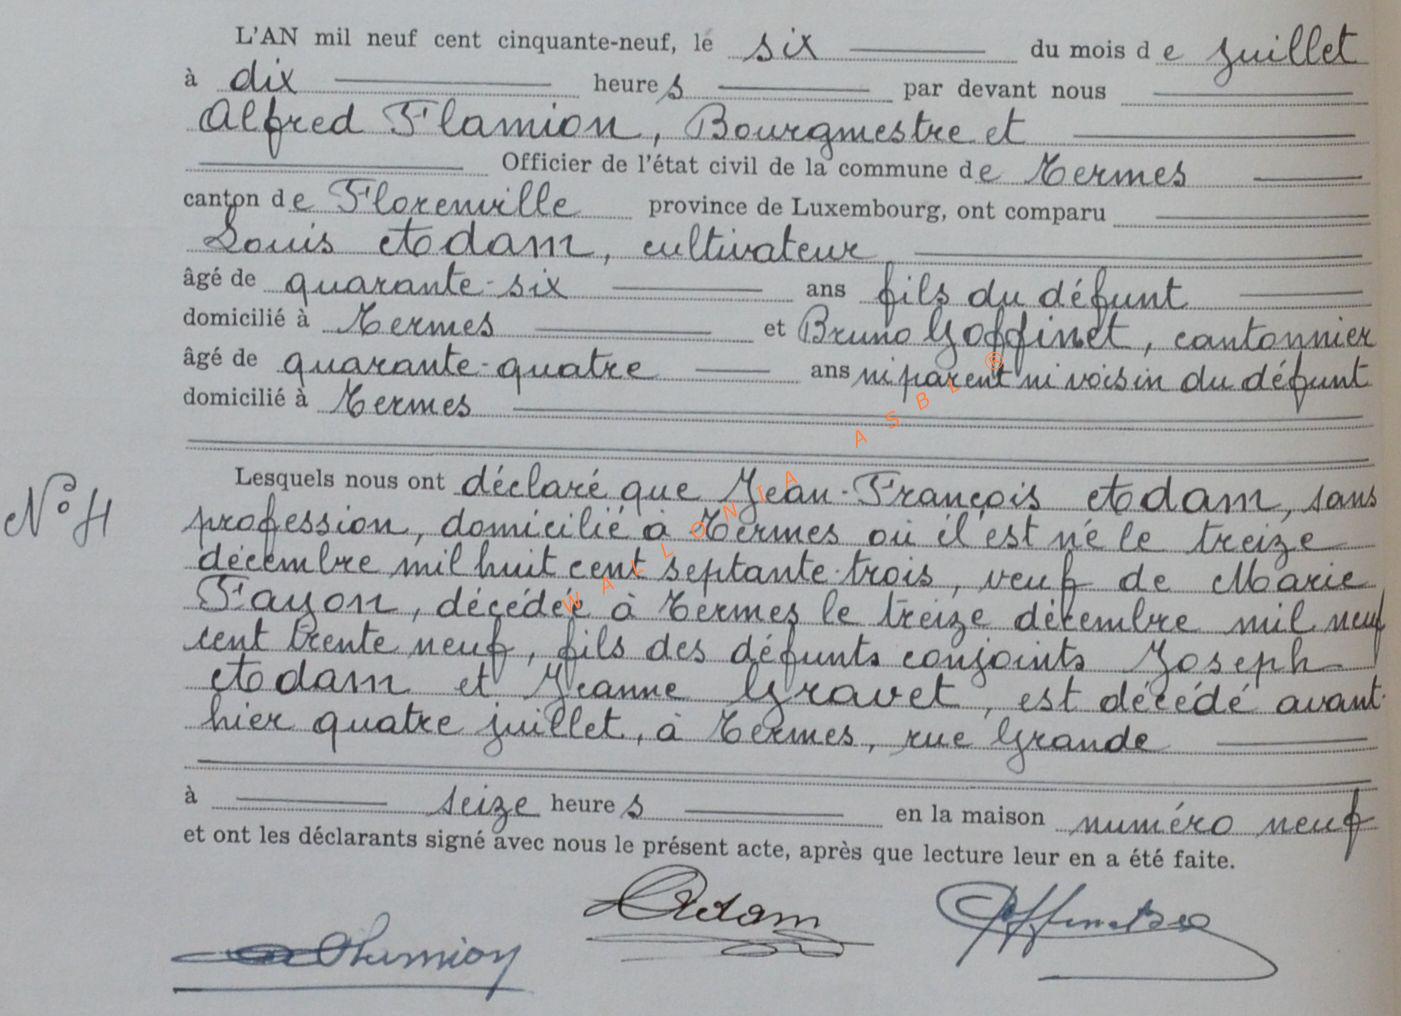 L'AN mil neuf cent cinquante-neuf, le six du mois de juillet
à dix heures par devant nous
Alfred Flamion, Bourgmestre et
Officier de l'état civil de la commune de Termes
canton de Florenville province de Luxembourg, ont comparu
Louis Adam, cultivateur
âgé de quarante-six ans fils du défunt
domicilié à Termes et Bruno Goffinet, cantonnier
âgé de quarante-quatre ans ni parent ni voisin du défunt
domicilié à Termes
Lesquels nous ont déclaré que Jean-François Adam, sans
N° 4
profession, domicilié à Termes où il est né le treize
décembre mil huit cent septante-trois, veuf de Marie
Fayon, décédée à Termes le treize décembre mil neuf
cent trente neuf, fils des défunts conjoints Joseph
Adam et Jeanne Gravet, est décédé avant-
hier quatre juillet, à Termes, rue Grande
à seize heures en la maison numéro neuf
et ont les déclarants signé avec nous le présent acte, après que lecture leur en a été faite.
LAdam
Flamion
WALLONIA ASBL ®